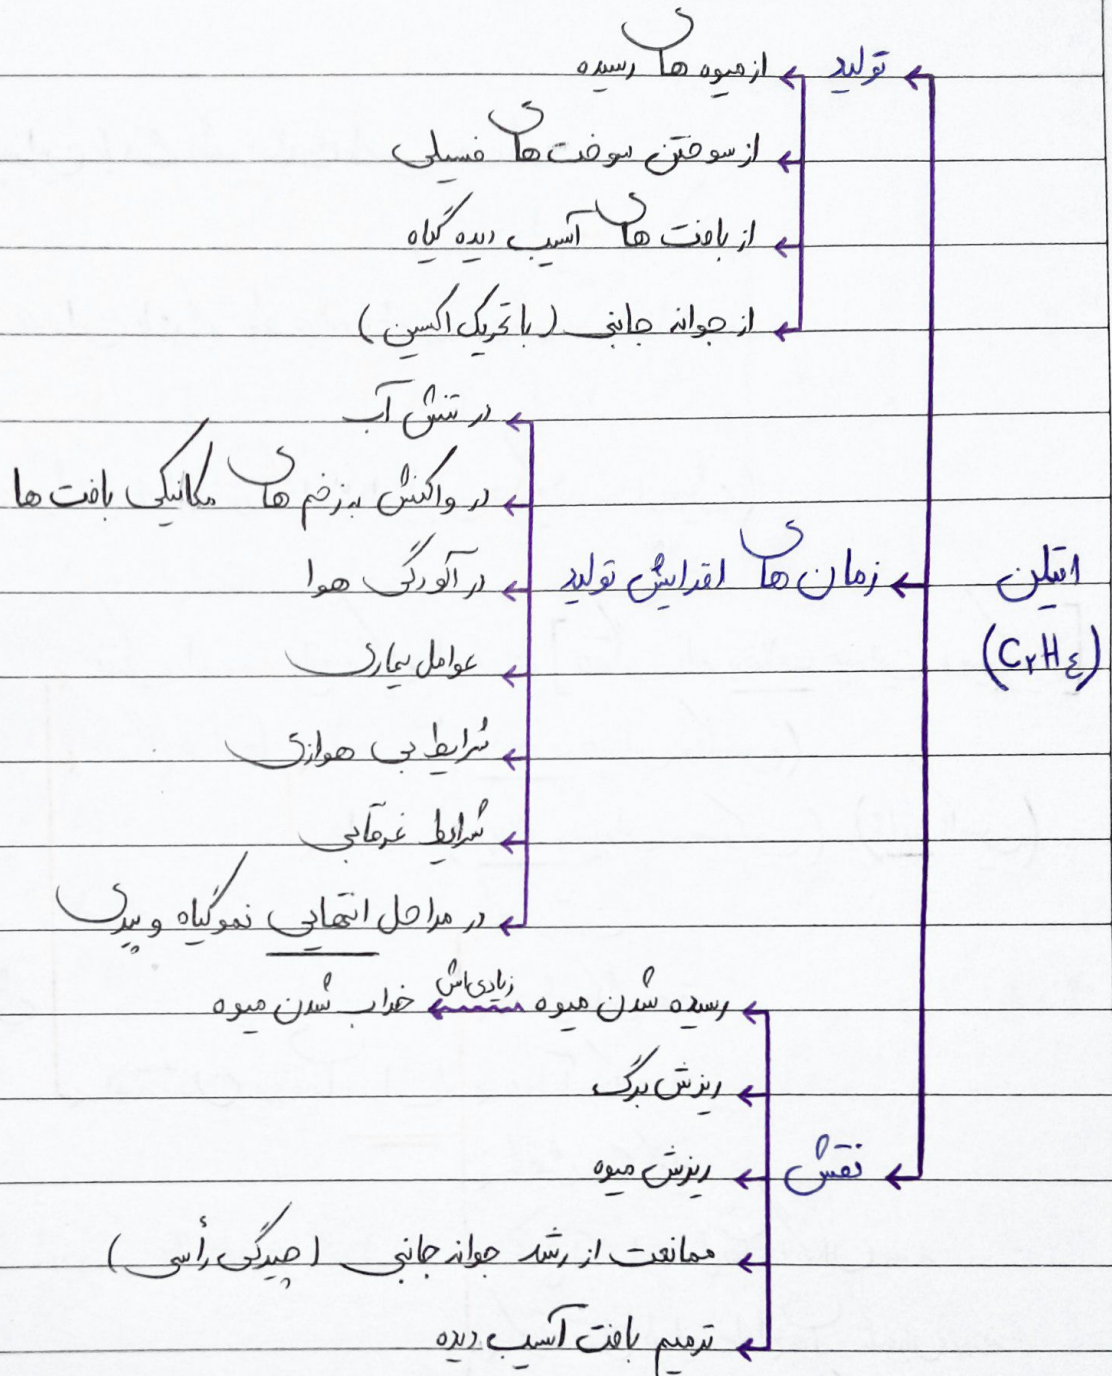 اتیلن
(C۲H٤)
تولید
از میوه های رسیده
از سوختن سوخت های فسیلی
از بافت های آسیب دیده گیاه
از جوانه جانبی (با تحریک اکسین)
زمان های افزایش تولید
در تنش آب
در واکنش به زخم های مکانیکی بافت ها
در آلودگی هوا
عوامل بیماری
شرایط بی هوازی
شرایط غرقابی
در مراحل انتهایی نمو گیاه و پیری
نقش
رسیده شدن میوه زیادی اش خراب شدن میوه
ریزش برگ
ریزش میوه
ممانعت از رشد جوانه جانبی (چیرگی رأسی)
ترمیم بافت آسیب دیده